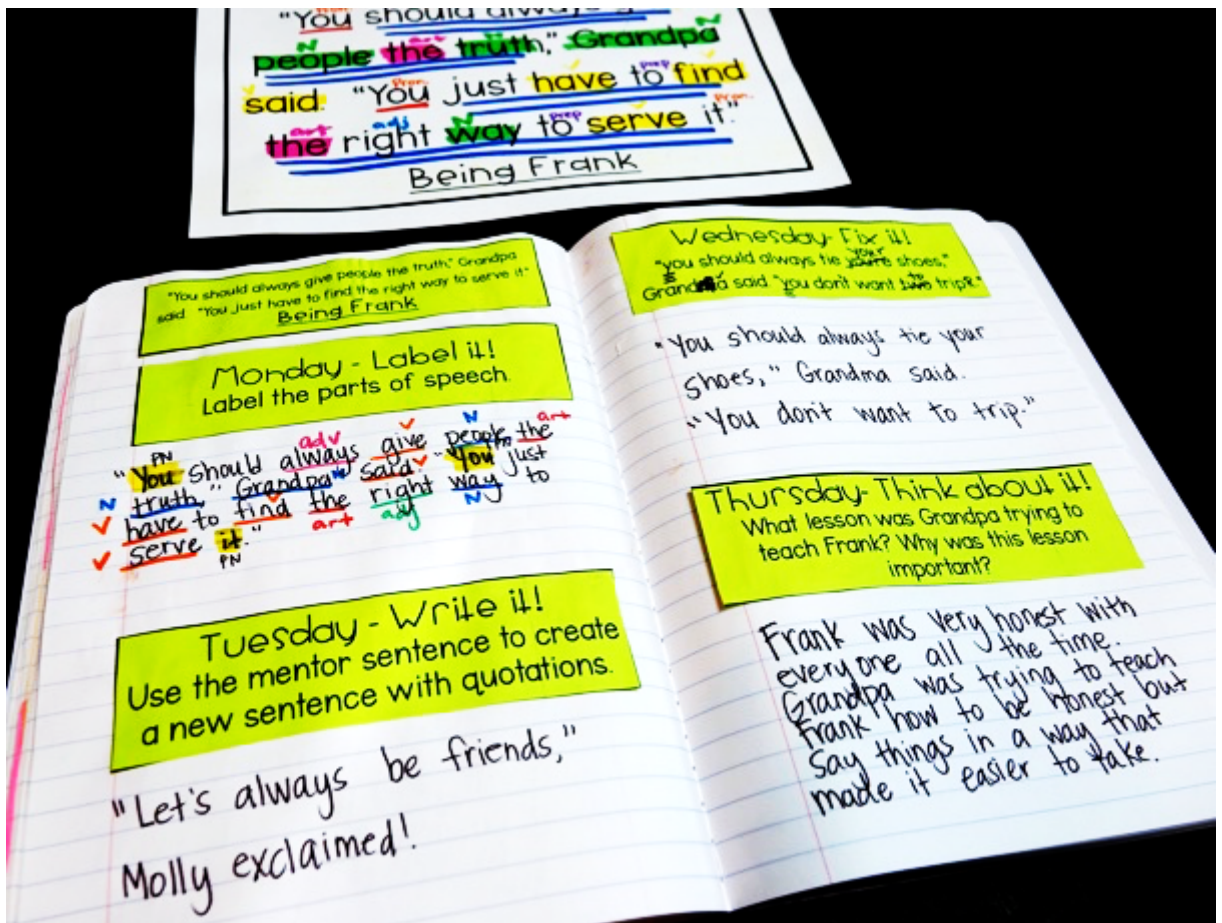 "You should always g
people the truth," Grandpa
said. "You just have to find
the right way to serve it."
Being Frank
"You should always give people the truth," Grandpa
said. "You just have to find the right way to serve it."
Being Frank
Monday - Label it!
Label the parts of speech.
PN adv V N art
"You should always give people the
N truth," Grandpa N said. V "You PN just
V have to find the right way to
art adj N
V serve it."
PN
Tuesday - Write it!
Use the mentor sentence to create
a new sentence with quotations.
"Let's always be friends,"
Molly exclaimed!
Wednesday - Fix it!
your
"you should always tie shoes,"
to
said. "you don't want two trip?."
"You should always tie your
shoes," Grandma said.
"You don't want to trip."
Thursday - Think about it!
What lesson was Grandpa trying to
teach Frank? Why was this lesson
important?
Frank was very honest with
everyone all the time.
Grandpa was trying to teach
Frank how to be honest but
say things in a way that
made it easier to take.